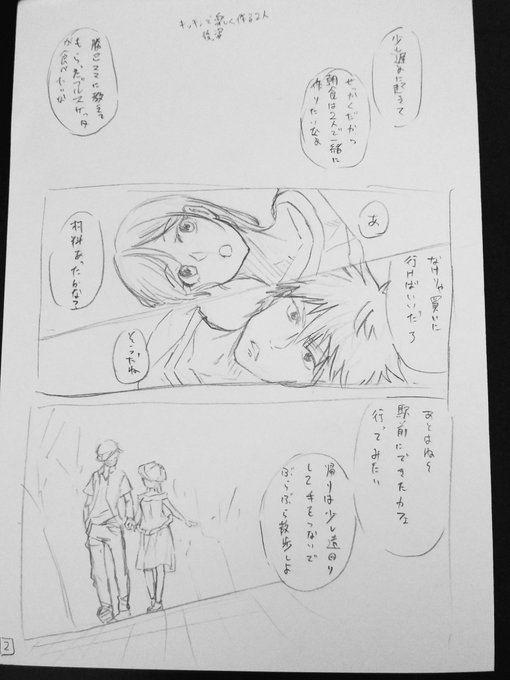 キッチンで楽しく作る2人
後姿
少し遅めに起きて
せっかくだから
朝食は2人で一緒に
作りたいなぁ
勝己ママに教えて
もらったブルスケッタ
が食べたいな
あ
材料あったかな?
なけりゃ買いに
行けばいいだろ
そうだね
あとはね〜
駅前にできたカフェ
行ってみたい
帰りは少し遠回り
して手をつないで
ぶらぶら散歩しよ
2